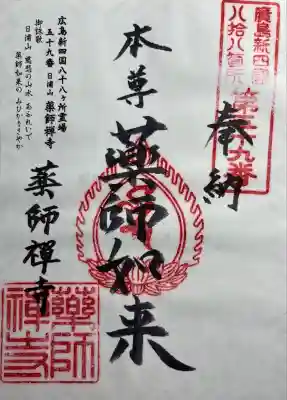 廣島新四國
八拾八箇所
第五十九番
奉納
本尊 薬師如来
広島新四国八十八ヶ所霊場
五十九番 日浦山 薬師禅寺
御詠歌
日浦山 慈悲の山水 あふれいで
薬師如来の みひかりさやか
薬師禅寺
薬師
禅寺